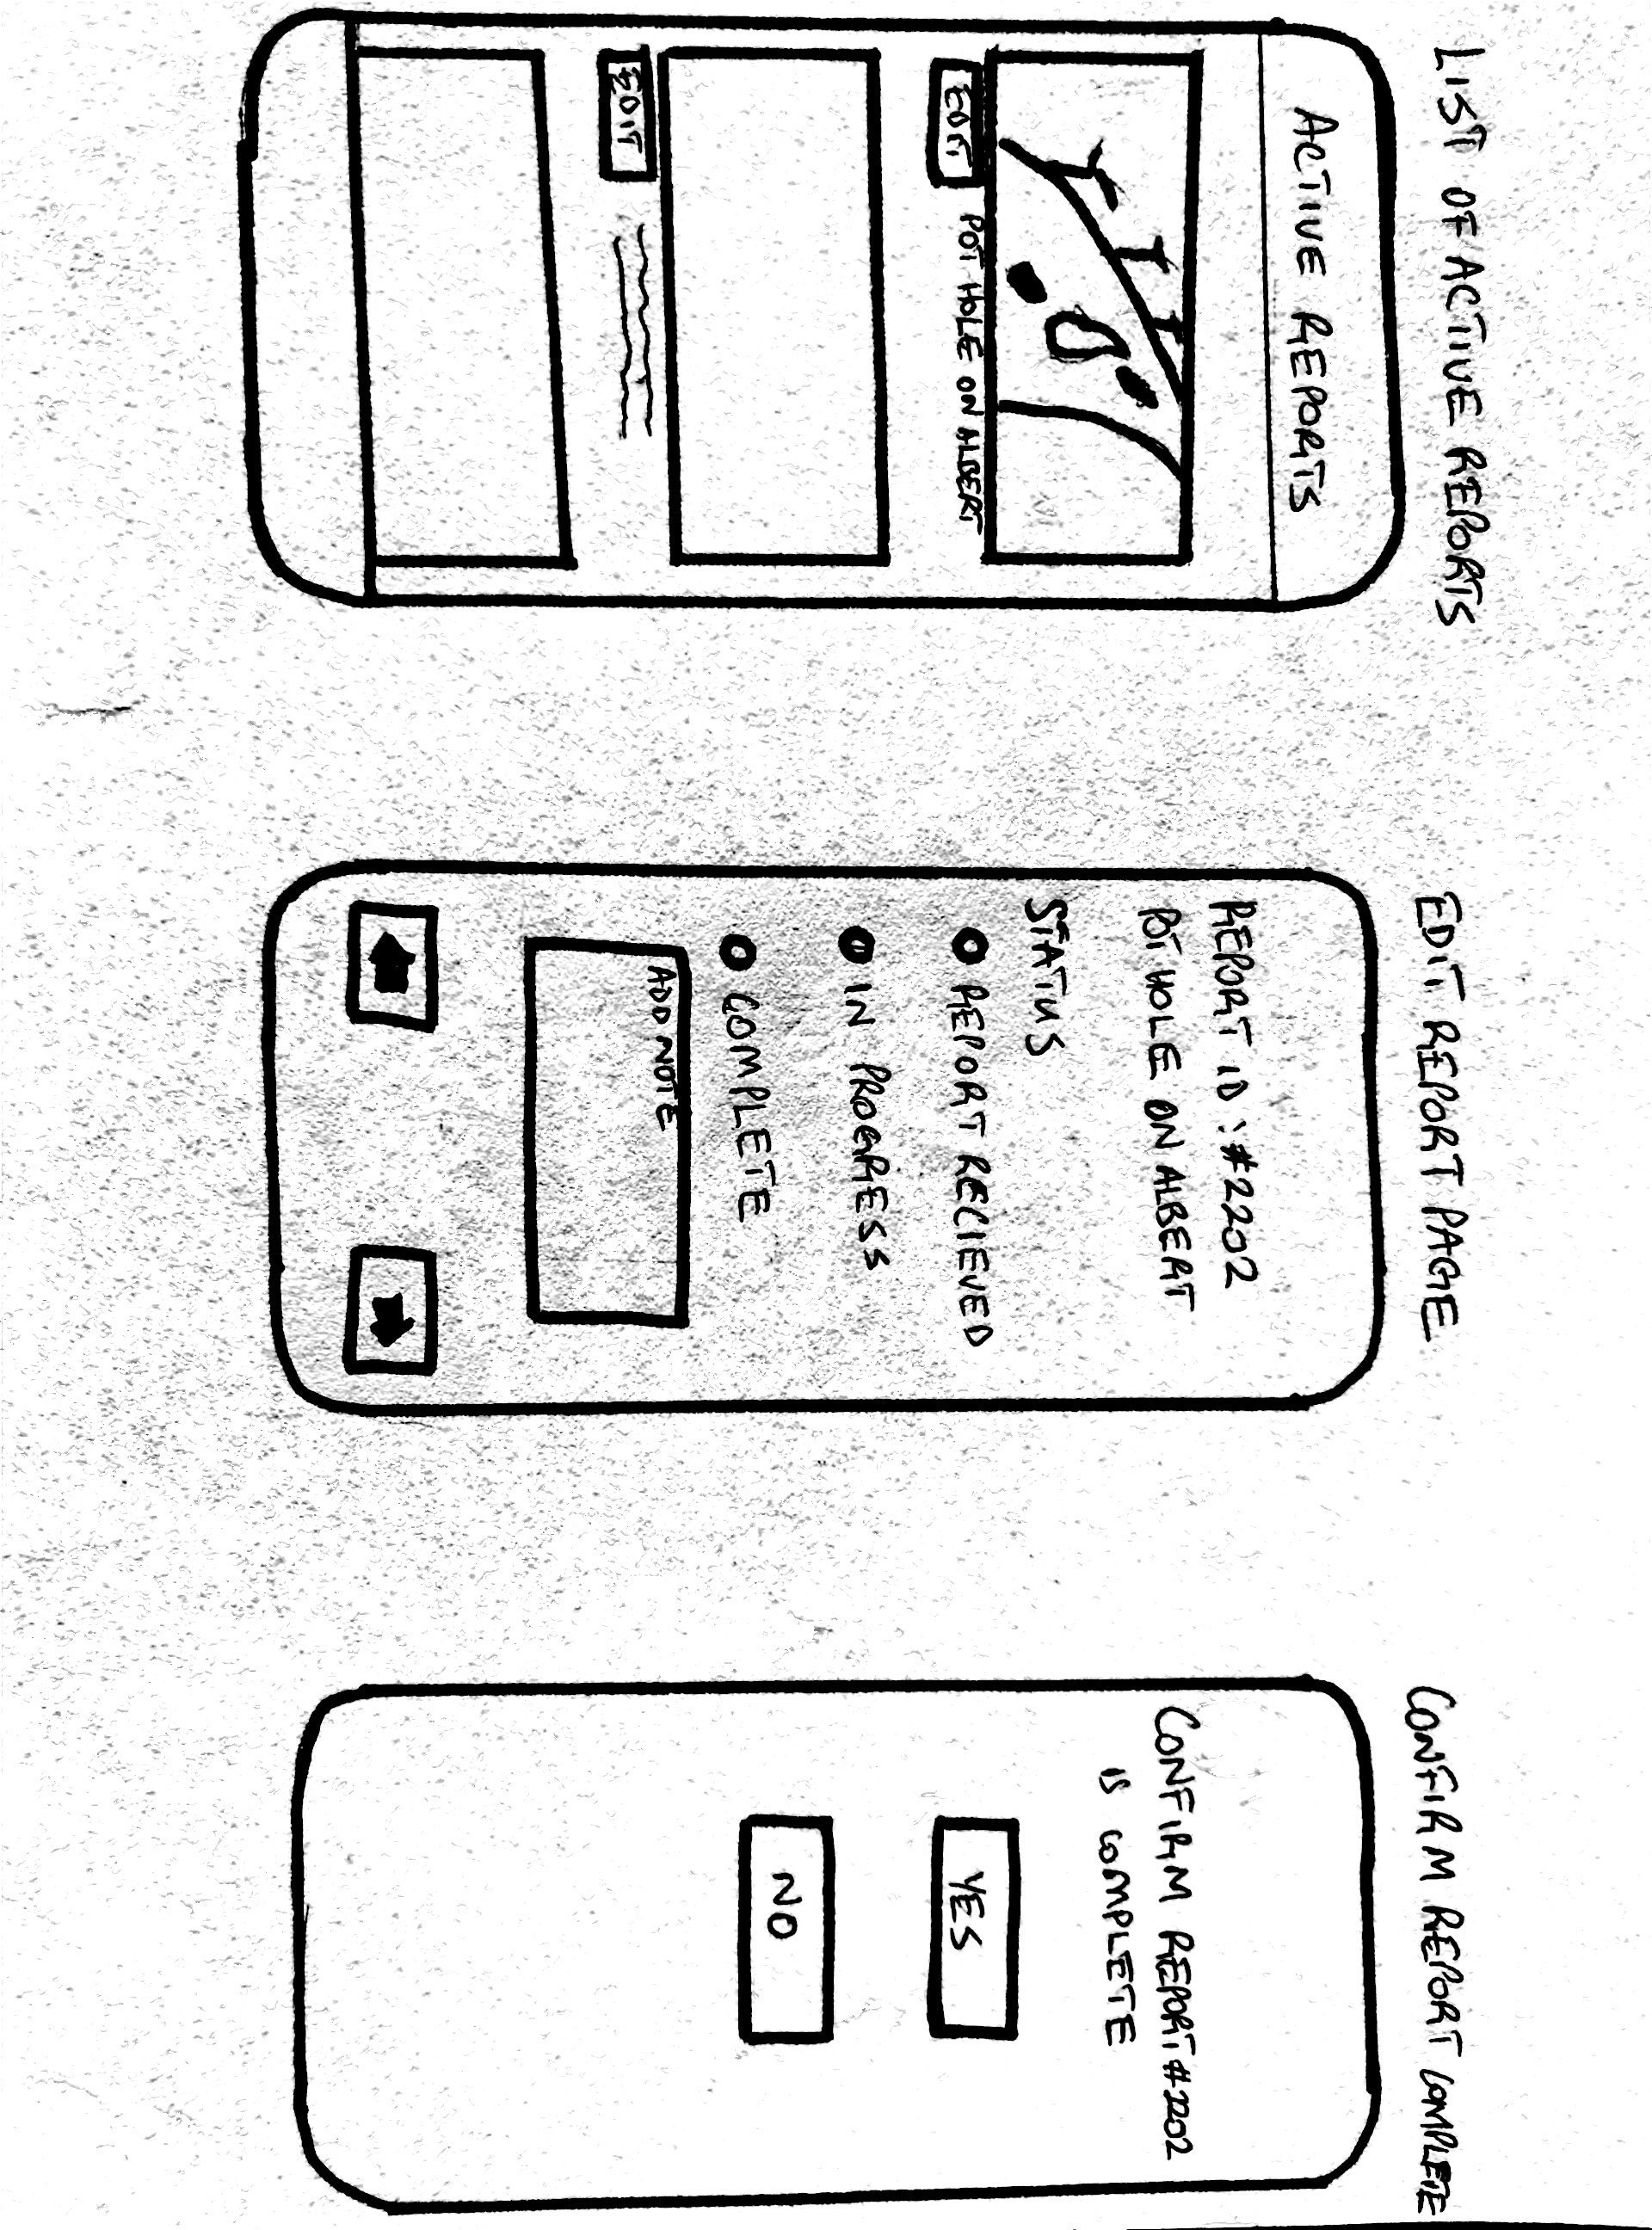 LIST OF ACTIVE REPORTS
ACTIVE REPORTS
EDIT
POT HOLE ON ALBERT
EDIT
EDIT REPORT PAGE
REPORT ID : #2202
POT HOLE ON ALBERT
STATUS
REPORT RECIEVED
IN PROGRESS
COMPLETE
ADD NOTE
CONFIRM REPORT COMPLETE
CONFIRM REPORT #2202
IS COMPLETE
YES
NO